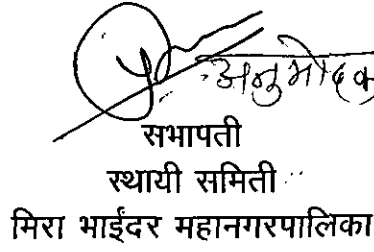 अनुमोदक
सभापती
स्थायी समिती
मिरा भाईंदर महानगरपालिका